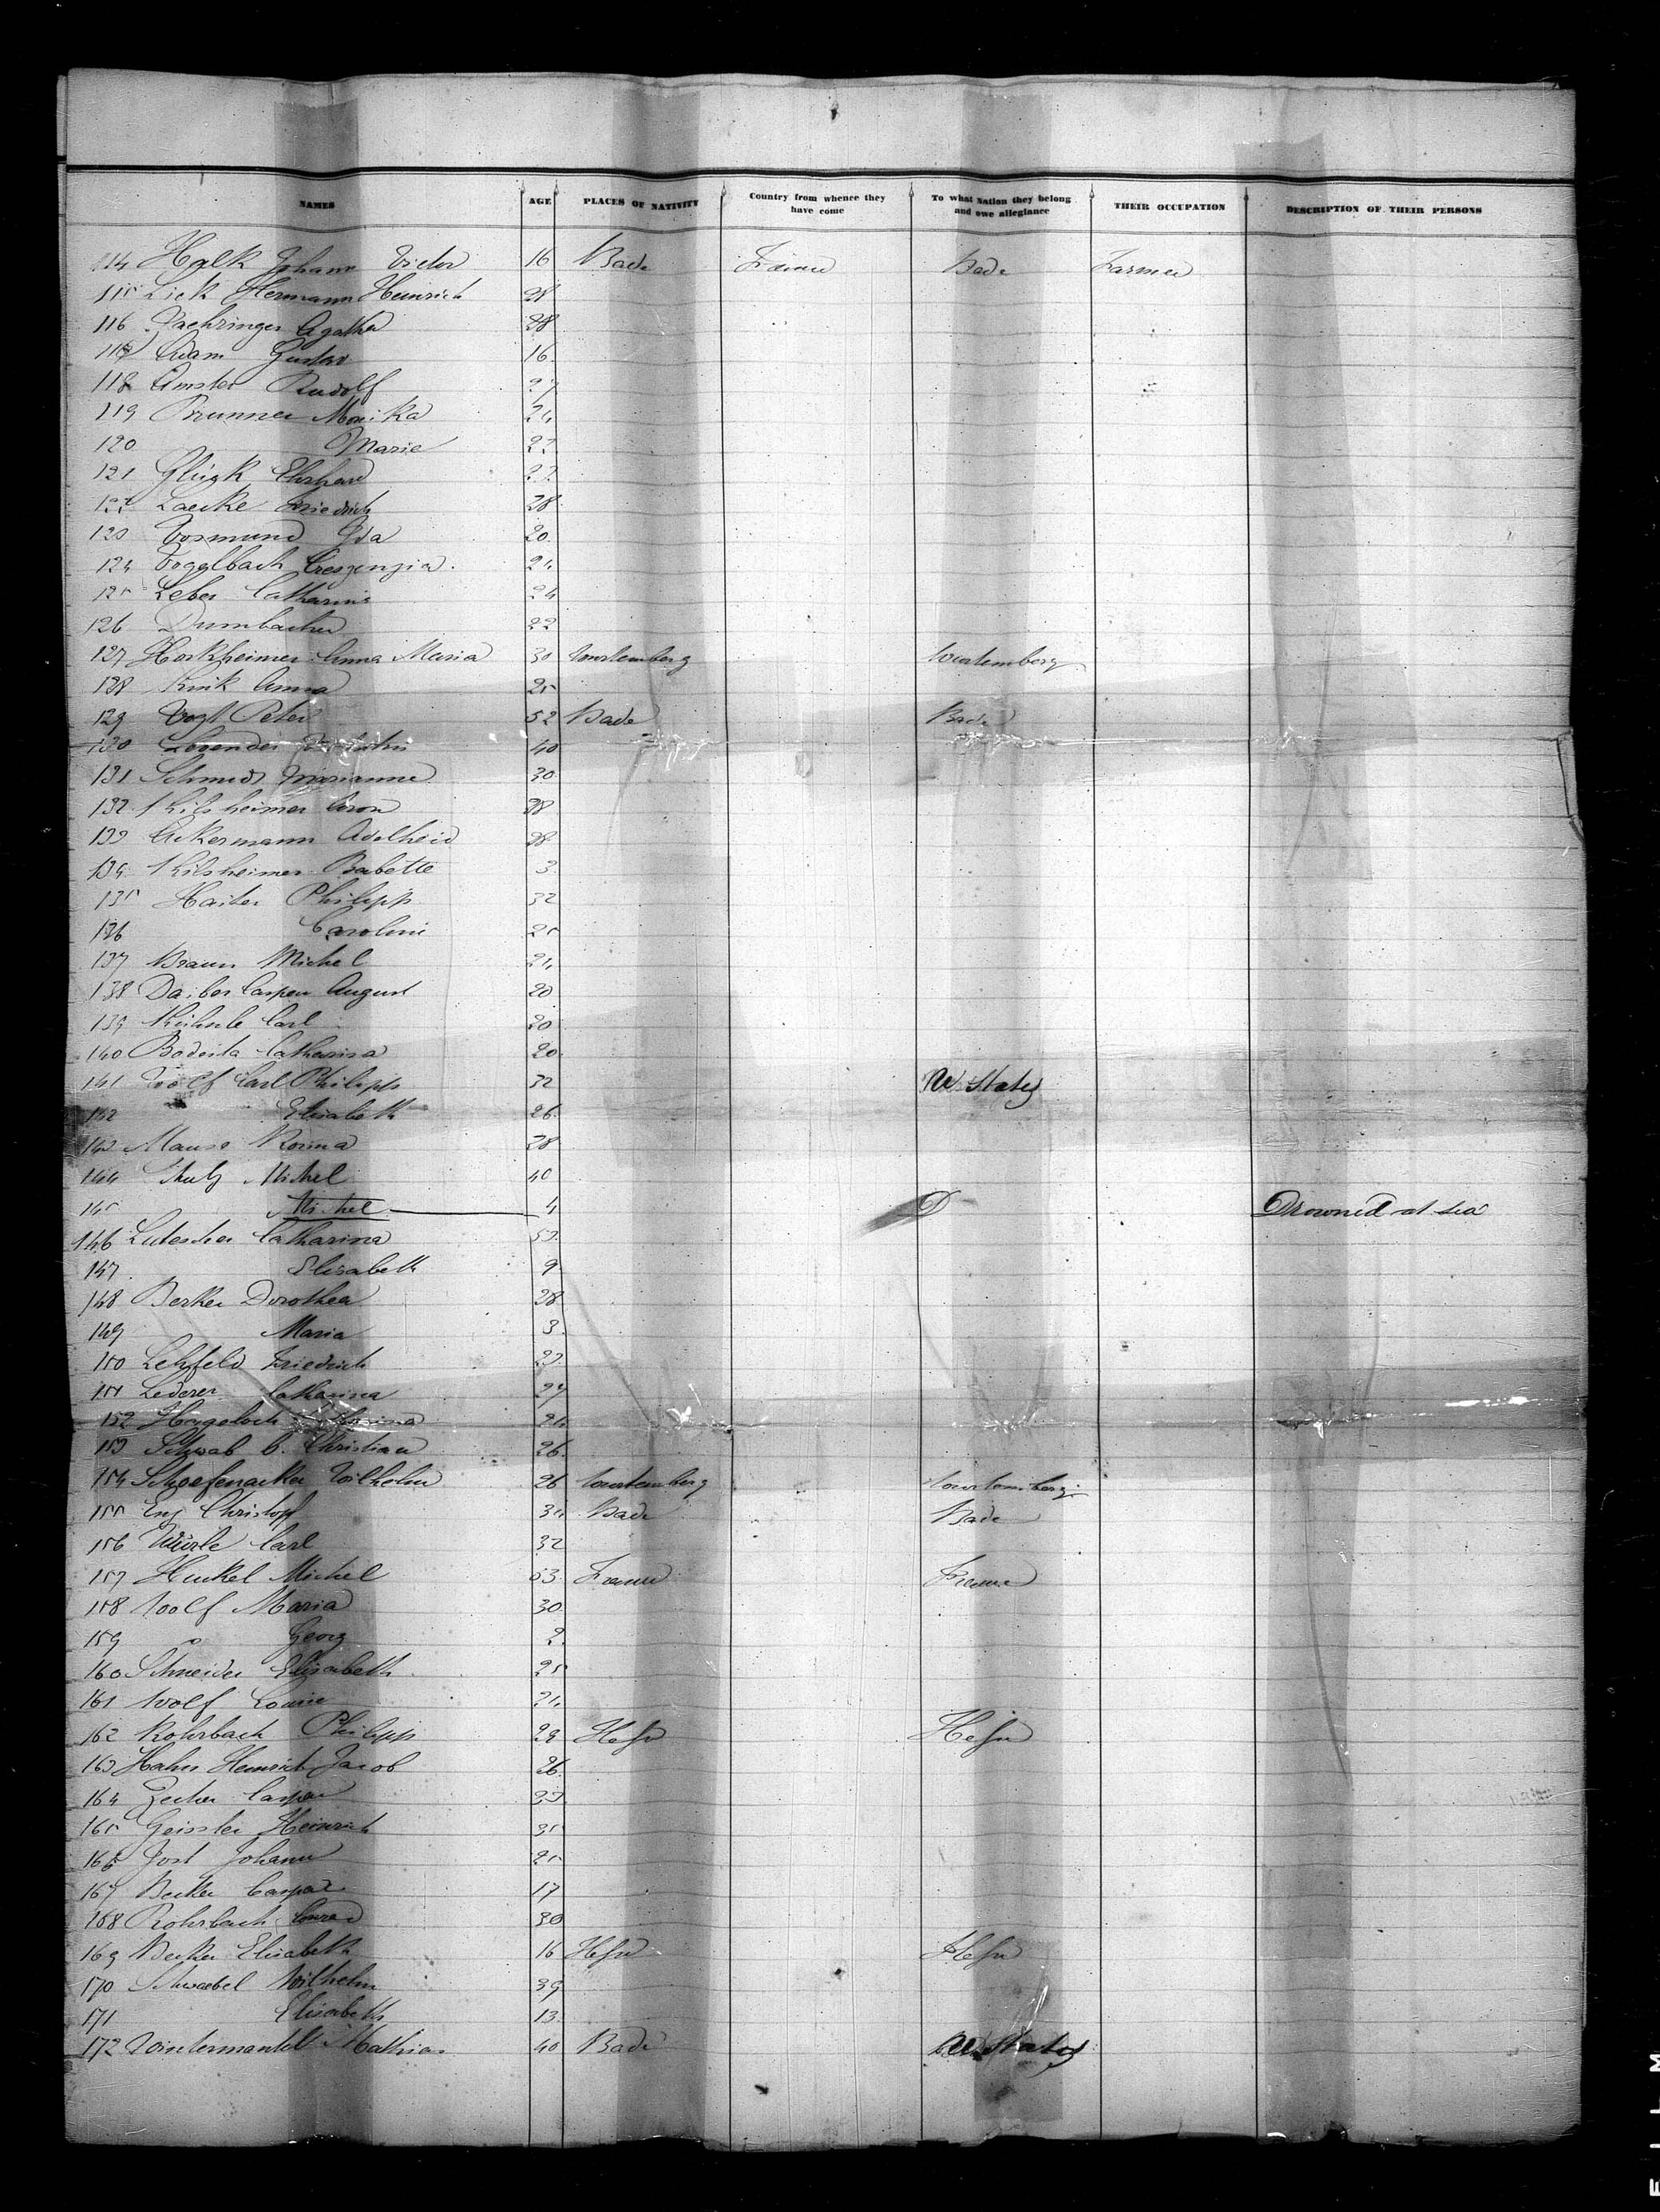 NAMES AGE PLACES OF NATIVITY Country from whence they have come To what Nation they belong and owe allegiance THEIR OCCUPATION DESCRIPTION OF THEIR PERSONS
114 Halk Johann Victor 16 Bade France Bade Farmer
115 Lick Hermann Heinrich 28
116 Zaehringer Agatha 28
117 Adam Gustav 16
118 Amster Rudolf 27
119 Brunner Monika 24
120 Marie 22
121 Ehrhard
122 Laecke Friedrich 28
123 Vosmund Ida 20
124 Vogelbach Creszenzia 24
125 Leber Catharine 24
126 Dumbacher 22
127 Horkheimer Anna Maria 30 Wurtemberg Wurtemberg
128 Kink Anna 25
129 Vogt Peter 52 Bade Bade
130 40
131 Schmidt Marianne 30
132 Kilsheimer Aron 28
133 Ackermann Adelheid 28
134 Kilsheimer Babette 3
135 Haiter Philipp 32
136 Caroline 25
137 Braun Michel 24
138 Daiber Caspar August 20
139 Carl 20
140 Catharina 20
141 Wolf Carl Philipp 32 U States
142 Elisabeth 26
143 Rosina 28
144 Michel 40
145 Michel 4 D Drowned at sea
146 Catharina
147 Elisabeth 9
148 Berker Dorothea 28
149 Maria 3
150 Lehfeld Friedrich 23
151 Lederer Catharina 27
152 Hageloch
153 Schwab C. Christian 26
154 Schoefenacker Wilhelm 26 Wurtemberg Wurtemberg
155 Christoph 34 Bade Bade
156 Würle Carl 32
157 Huckel Michel 53 France France
158 Wolf Maria 30
159 " Georg 2
160 Schneider Elisabeth 25
161 Wolf Louise 24
162 Rohrbach Philipp 29 Hesse Hesse
163 Hahn Heinrich Jacob 26
164 Zecher Caspar 23
165 Geissler Heinrich 35
166 Jost Johann 25
167 Becker Caspar 17
168 Rohrbach Conrad 30
169 Becker Elisabeth 16 Hesse Hesse
170 Schwaebel Wilhelm 39
171 Elisabeth 13
172 Wintermantel Mathias 40 Bade U States